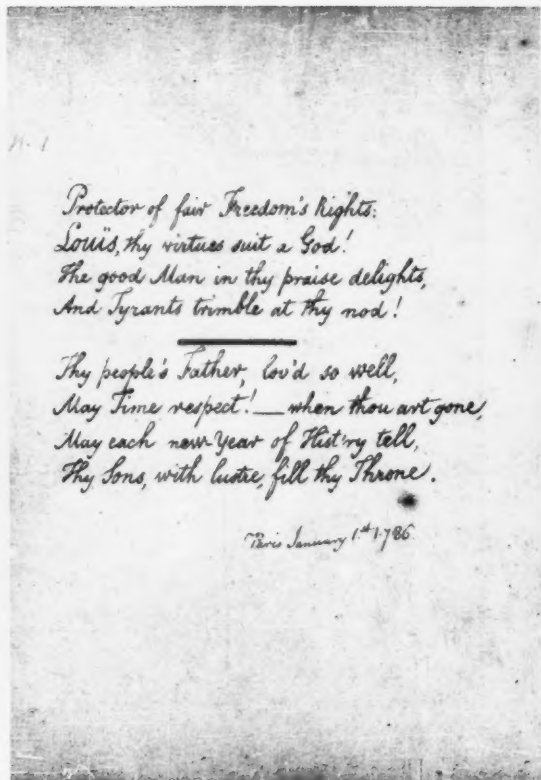 N. 1
Protector of fair Freedom's Rights:
Louïs, thy virtues suit a God!
The good Man in thy praise delights,
And Tyrants trimble at thy nod!
Thy people's Father, lov'd so well,
May Time respect! — when thou art gone,
May each new-Year of Hist'ry tell,
Thy Sons, with lustre, fill thy Throne.
Paris January 1.st 1786.